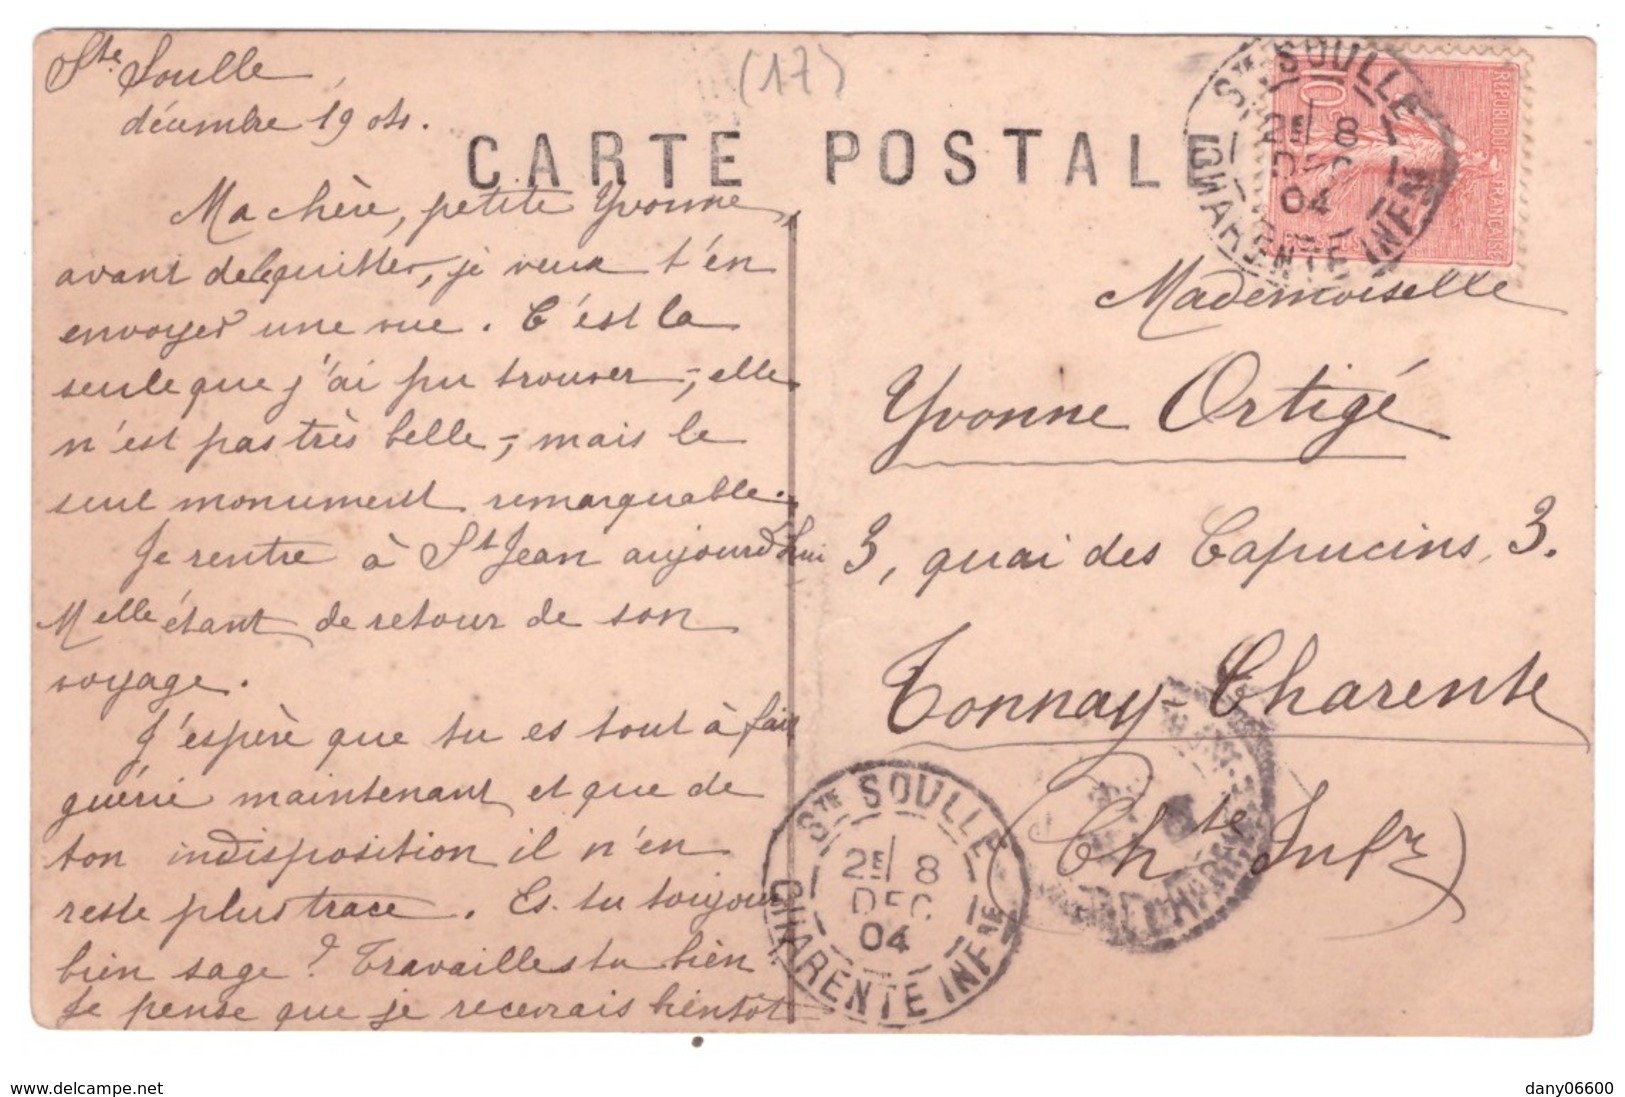 Ste Soulle
décembre 1904.
(17)
CARTE POSTALE
Ma chère, petite Yvonne,
avant de le quitter, je veux t'en
envoyer une vue. C'est la
seule que j'ai pu trouver, elle
n'est pas très belle, mais le
seul monument remarquable.
Je rentre à St Jean aujourd'hui
Melle étant de retour de son
voyage.
J'espère que tu es tout à fait
guérie maintenant et que de
ton indisposition il n'en
reste plus trace. Es. tu toujours
bien sage? Travailles tu bien
Je pense que je recevrais bientôt
STE SOULLE
2E 8
DEC
04
CHARENTE INFRE
10
REPUBLIQUE FRANÇAISE
POSTES
Mademoiselle
Yvonne Ortigé
3, quai des Capucins, 3.
Tonnay-Charente
(Chte Infre)
STE SOULLE
2E 8
DEC
04
CHARENTE INFRE
www.delcampe.net
dany06600